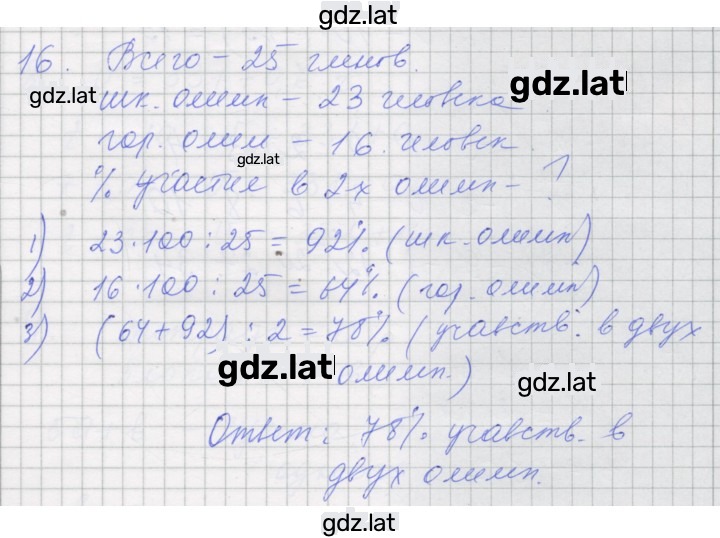 gdz.lat
16. Всего - 25 членов.
gdz.lat
gdz.lat
шк. олимп - 23 человека
гор. олим - 16. человек.
gdz.lat
% участие в 2х олимп -
1) 23·100:25 = 92%. (шк. олимп)
2) 16·100:25 = 64% (гор. олимп)
3) (64+92) : 2 = 78% (учавств. в двух
олимп.)
gdz.lat
gdz.lat
Ответ: 78% учавств. в
двух олимп.
gdz.lat